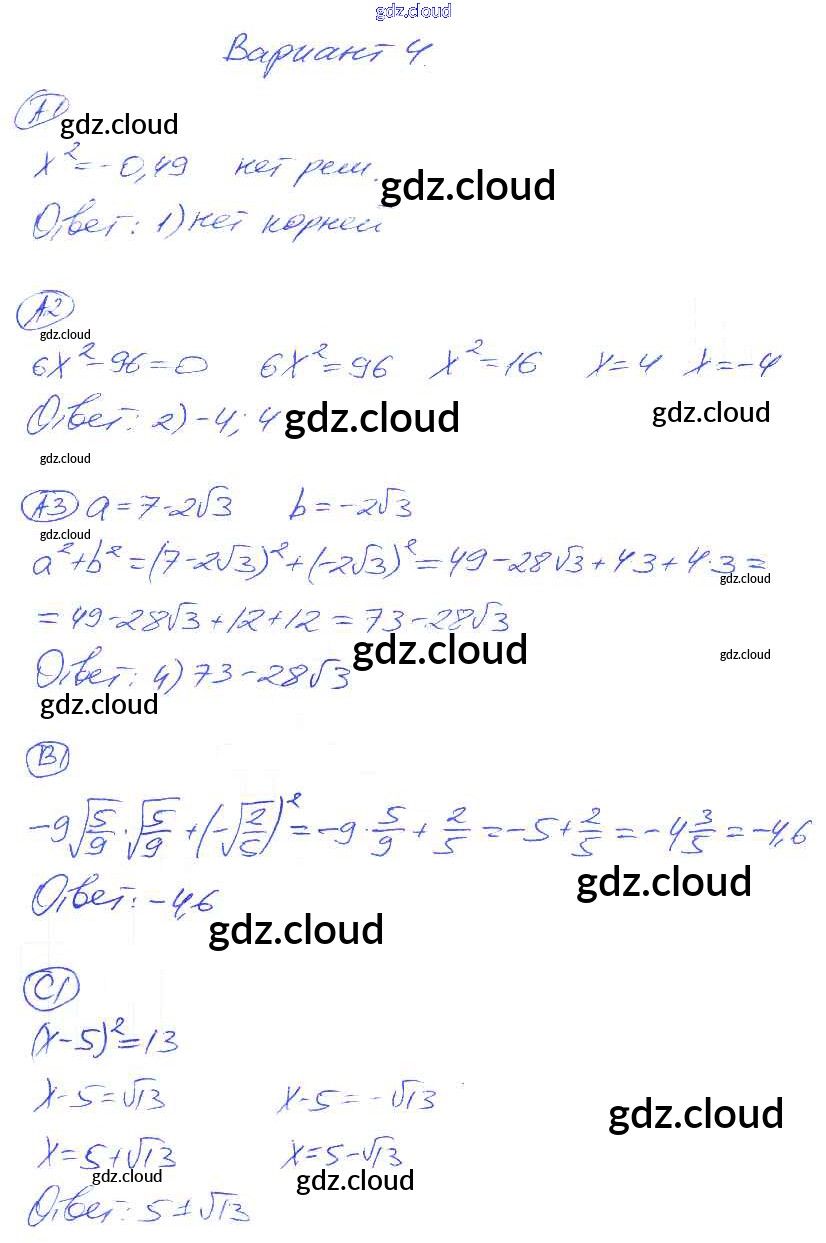 gdz.cloud
Вариант 4
А1
gdz.cloud
x² = -0,49 нет реш.
gdz.cloud
Ответ: 1) нет корней
А2
gdz.cloud
6x² - 96 = 0 6x² = 96 x² = 16 x = 4 x = -4
Ответ: 2) -4; 4
gdz.cloud
gdz.cloud
gdz.cloud
А3 a = 7 - 2√3 b = -2√3
gdz.cloud
a² + b² = (7 - 2√3)² + (-2√3)² = 49 - 28√3 + 4·3 + 4·3 =
gdz.cloud
= 49 - 28√3 + 12 + 12 = 73 - 28√3
gdz.cloud
gdz.cloud
Ответ: 4) 73 - 28√3
gdz.cloud
В1
-9√(5/9) · √(5/9) + (-√(2/5))² = -9 · 5/9 + 2/5 = -5 + 2/5 = -4 3/5 = -4,6
gdz.cloud
Ответ: -4,6
gdz.cloud
С1
(x - 5)² = 13
x - 5 = √13 x - 5 = -√13
gdz.cloud
x = 5 + √13 x = 5 - √13
gdz.cloud
gdz.cloud
Ответ: 5 ± √13